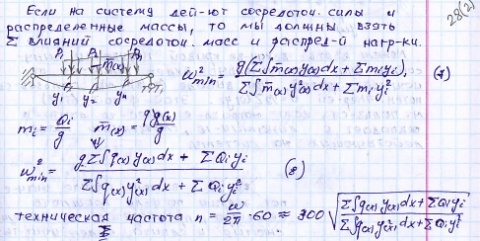 28(2)
Если на систему дей-ют сосредоточ. силы и
распределенные массы, то мы должны взять
Σ влияний сосредоточ. масс и распред-й нагр-ки.
P₁ P₂ m̄(x) Pₙ
y₁ y₂ yₙ
ω²min = g(Σ∫m̄(x)y(x)dx + Σmᵢyᵢ) / Σ∫m̄(x)y²(x)dx + Σmᵢyᵢ² (7)
mᵢ = Qᵢ/g m̄(x) = q(x)/g
ω²min = gΣ∫q(x)y(x)dx + ΣQᵢyᵢ / Σ∫q(x)y²(x)dx + ΣQᵢyᵢ² (8)
техническая частота n = ω/2π · 60 ≈ 300 √(Σ∫q(x)y(x)dx + ΣQᵢyᵢ / Σ∫q(x)y²(x)dx + ΣQᵢyᵢ²)